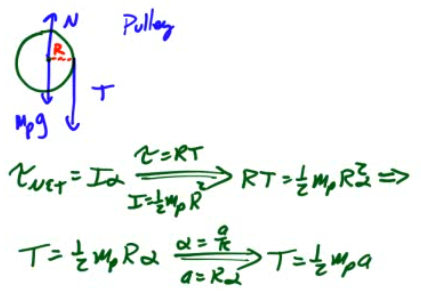 N
Pulley
R
T
m_p g
τ_NET = Iα  τ=RT  I=½m_pR²  ⟹  RT = ½ m_p R²α ⟹
T = ½ m_p Rα  α = a/R  a=Rα  ⟹  T = ½ m_p a